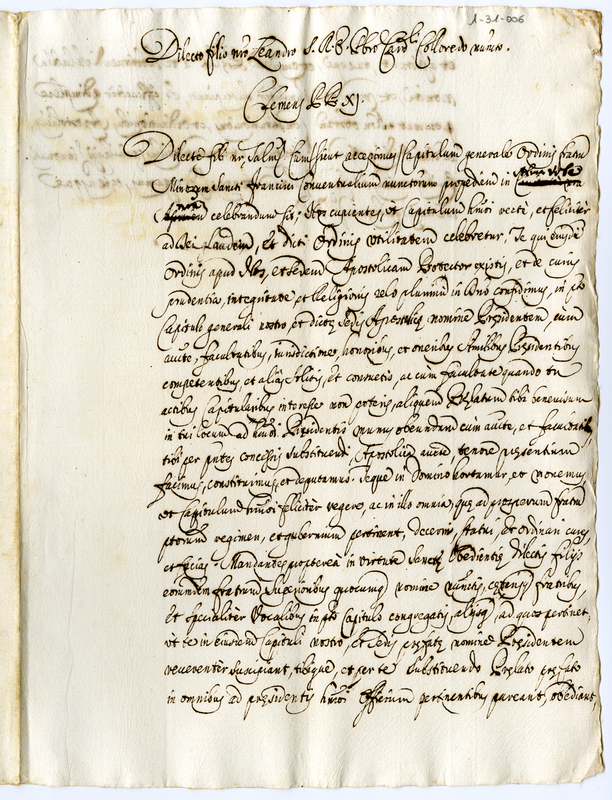 1-31-006
Dilecto filio nro Leandro S.R.E. Pbro Card. Coloredo nuncto.
Clemens PP XI.
Dilecte fili nr, Salm. Cum sicut accepimus Capitulum generale Ordinis fratru
Minorum Sancti Francisci Conventualium nuncttorum propediem in Alma Urbe
nra celebrandum sit; Nos cupientes, ut Capitulum hmoi recte, et feliciter
ad Dei laudem, et dicti Ordinis utilitatem celebretur, Te qui eiusdem
Ordinis apud Nos, et Sedem Apostolicam Protector existis, et de cuius
prudentia, integritate, et Religionis zelo plurimum in Dno confidimus, in pto
Capitulo generali nostro, et dictae Sedis Apostolicae nomine Praesidentem, cum
aucte, facultatibus, iurisdictione, honoribus, et oneribus similibus Praesidentibus
competentibus, et alias solitis, et consuetis, ac cum facultate quando tu
actibus Capitularibus interesse non poteris, aliquem Praelatum tibi benevisum
in tui locum ad hmoi Praesidentis munus obeundum cum aucte, et facultatibus
tibi per pntes concessis substituendi, Apostolica aucte tenore praesentium
facimus, constituimus, et deputamus. Teque in Domino hortamur, et monemus,
ut Capitulum hmoi feliciter regere, ac in illo omnia, quae ad prosperum fratrum
ptorum regimen, et gubernium pertinent, decerni, statui, et ordinari cures,
et facias. Mandantes propterea in virtute Sanctae Obedientiae dilectis filijs
eorumdem fratrum Superioribus quocumq nomine nunctis, caeterisq fratribus,
et specialiter Vocalibus in pto Capitulo congregatis, alijsq, ad quos pertinet,
ut te in eiusdem Capituli nostro, et Sedis praefatae nomine Praesidentem
reverenter suscipiant, tibique, et per te substituendo Praelato praefato
in omnibus ad praesidentis hmoi officium pertinentibus pareant, obediant,